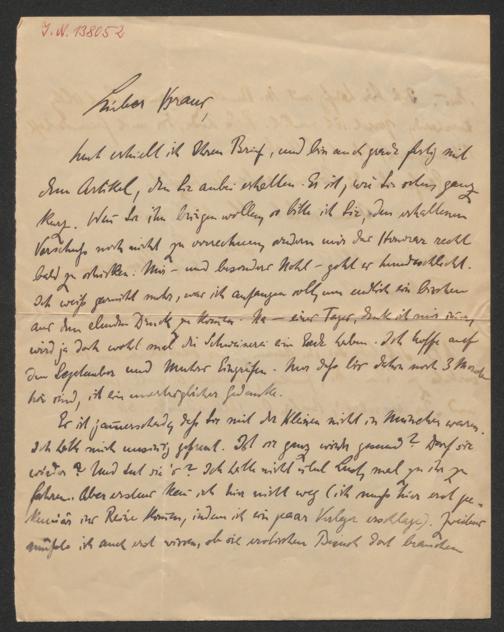 J. N. 138052
Lieber Kraus,
heut erhielt ich Ihren Brief, und bin auch grade fertig mit
dem Artikel, den Sie anbei erhalten. Es ist, wie Sie sehen, ganz
kurz. Wenn Sie ihn bringen wollen, so bitte ich Sie, den erhaltenen
Vorschuß noch nicht zu verrechnen, sondern mir das Honorar recht
bald zu schicken. Mir – und besonders Nohl – geht es hundeschlecht.
Ich weiß garnicht mehr, was ich anfangen soll, um endlich ein bischen
aus dem elenden Druck zu kommen. Na – eines Tages, denk ich mir immer,
wird ja doch wohl mal die Schweinerei ein Ende haben. Ich hoffe auf
den September und Mutters Eingreifen. Nur daß bis dahin noch 3 Monate
hin sind, ist ein unerträglicher Gedanke.
Es ist jammerschade, daß Sie mit der Kleinen nicht in München waren.
Ich hätte mich unsinnig gefreut. Ist sie ganz wieder gesund? Darf sie
wieder? Und tut sie's? Ich hätte nicht übel Lust, mal zu ihr zu
fahren. Aber erstens kann ich hier nicht weg (ich muß hier erst pe-
kuniär ins Reine kommen, indem ich ein paar Verleger erschlage). Zweitens
müßte ich auch erst wissen, ob sie erotischen Besuch dort brauchen